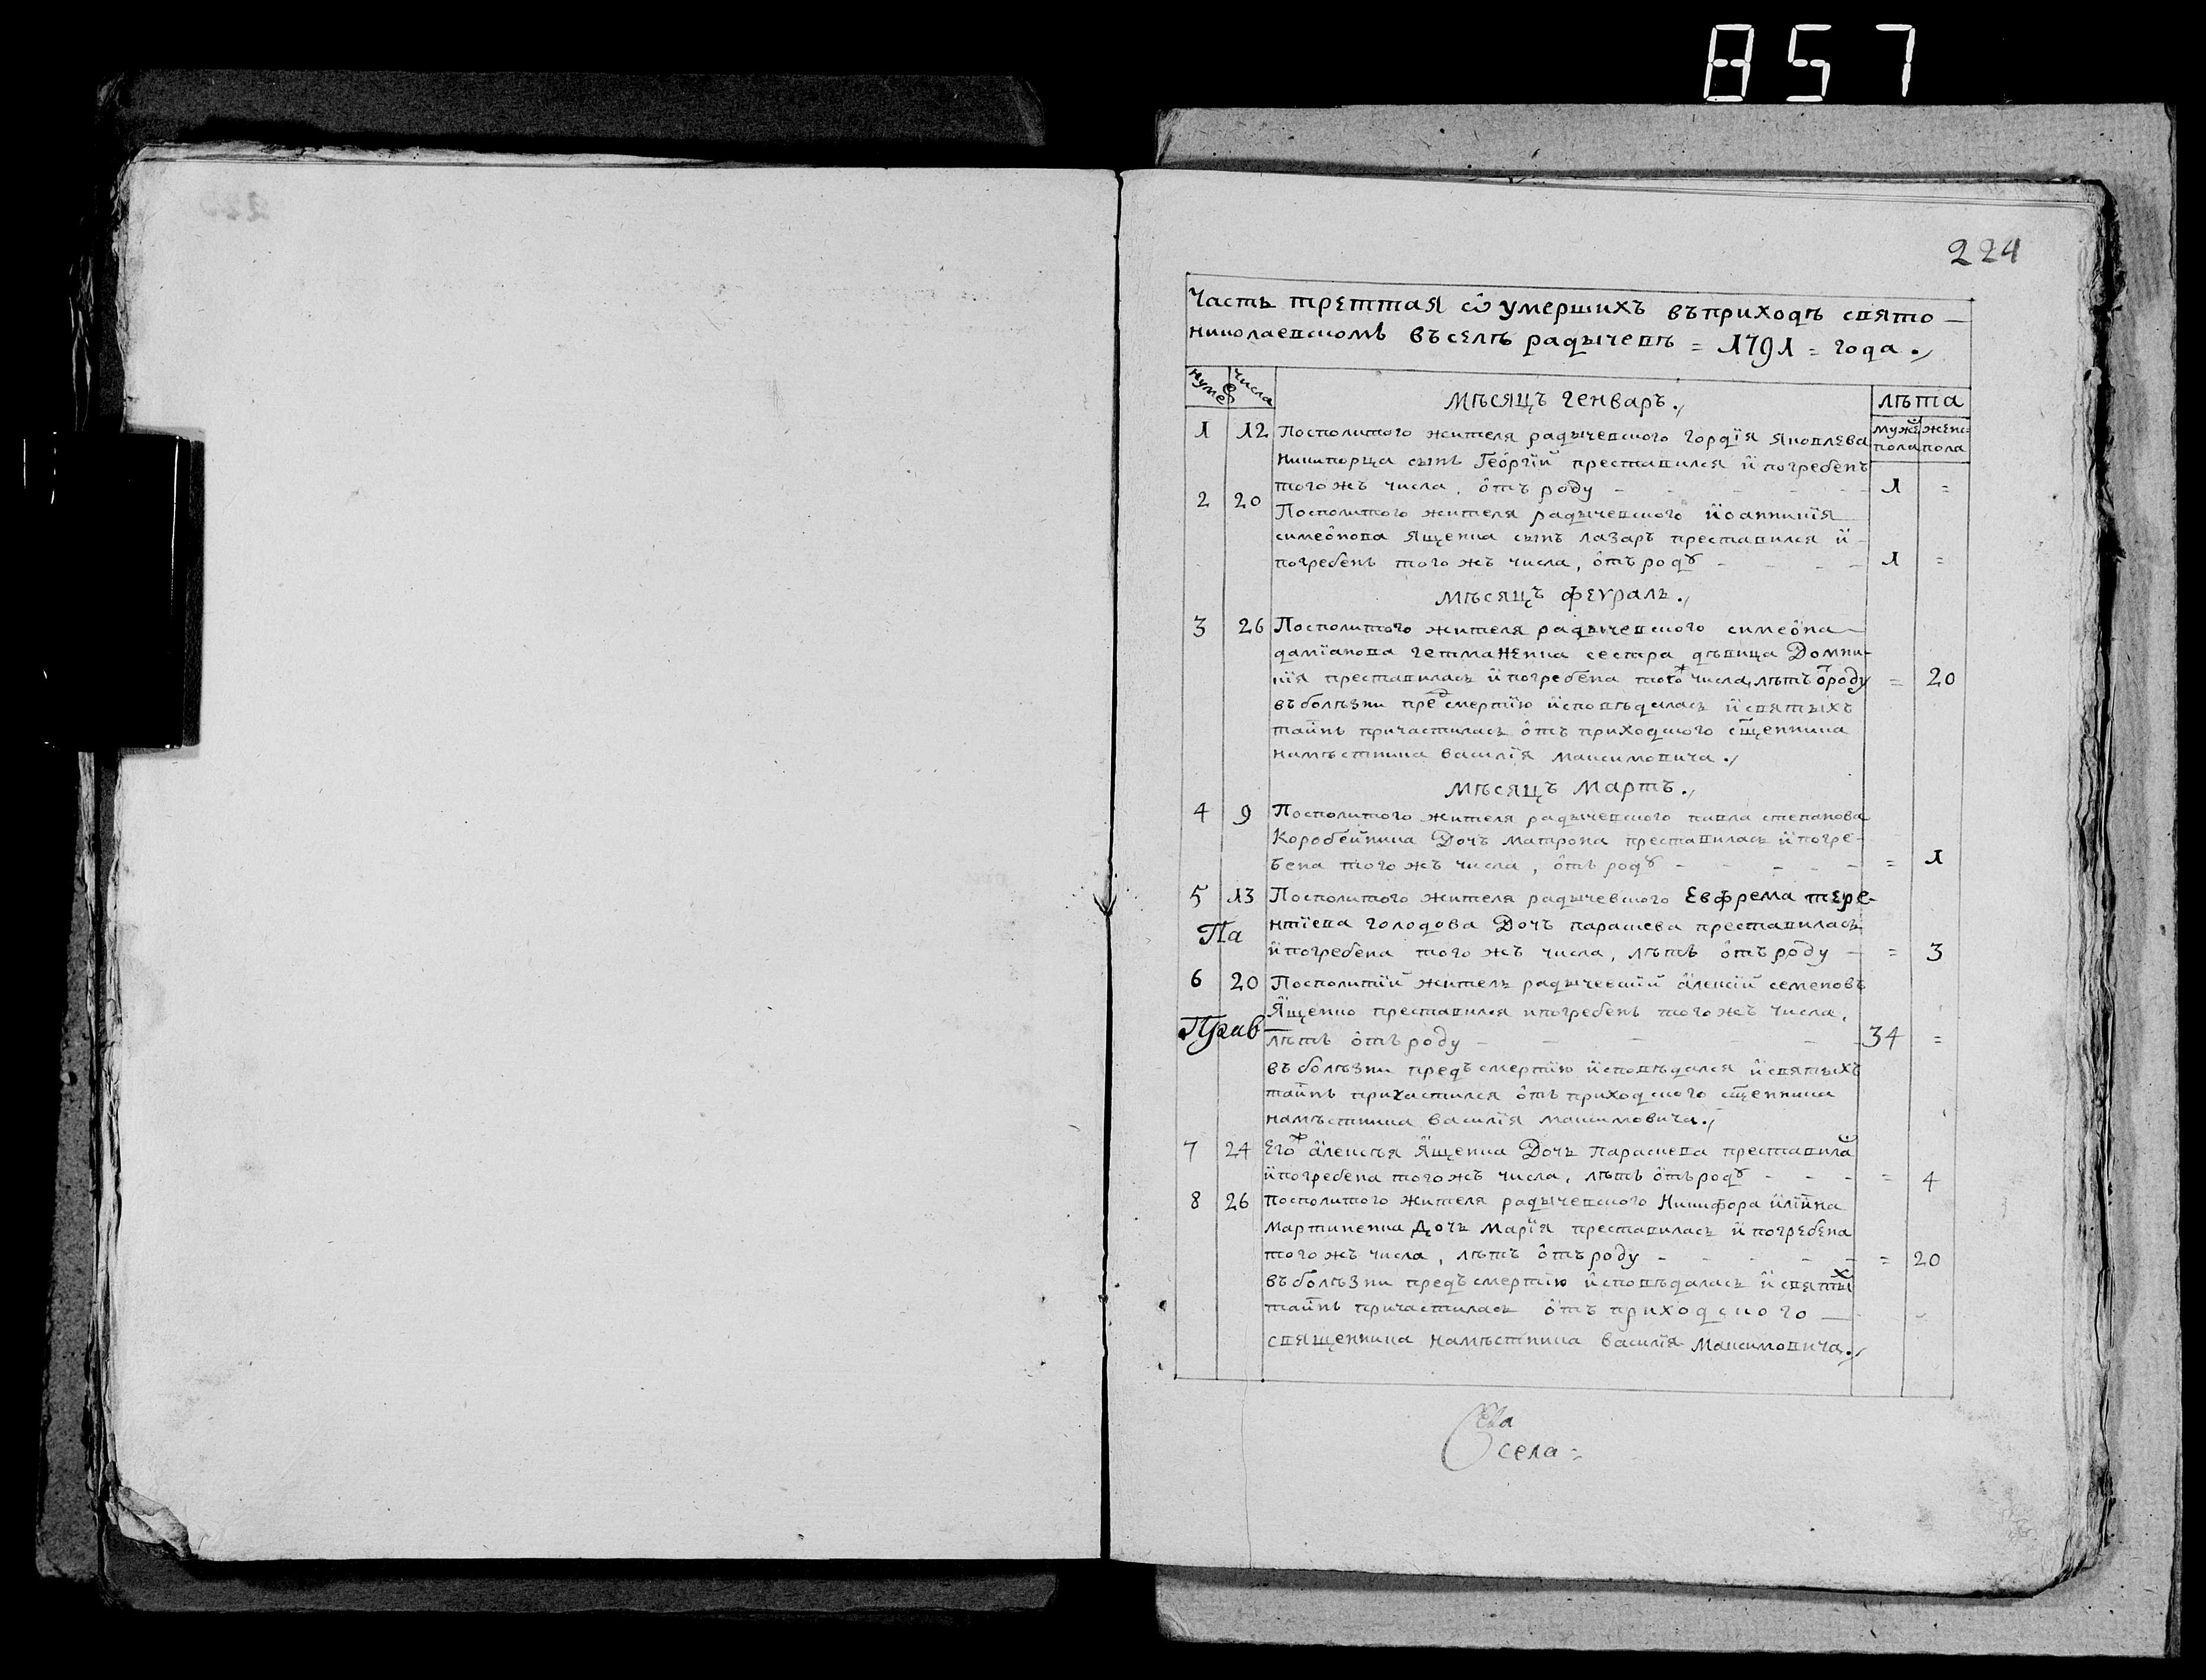 857
224
Часть треттая ѿ умершихъ въ приходѣ свято
николаевскомъ въ селѣ радычевѣ = 1791 = года ./
нуме числа
Мѣсяцъ Генварь ./ лѣта
муже женс
пола пола
1 12 Посполитого жителя радычевского Гордїя Яковлева
Никиторца сынъ Геѻргїй преставился и погребенъ
того жъ числа, ѻтъ роду - - - - - 1 =
2 20 Посполитого жителя радычевского їоанникїя
симеѻнова Ященка сынъ лазаръ преставился и
погребенъ того жъ числа, ѻтъ родꙋ - - - 1 =
Мѣсяцъ феѵраль ./
3 26 Посполитого жителя радычевского симеѻна
дамїанова гетманенка сестра дѣвица Домни-
кїя преставилась и погребена тогож числа, лѣтъ ѿ роду = 20
въ болѣзни пред смертїю исповѣдалась и святыхъ
тайнъ причастилась ѻтъ приходского сщенника
намѣстника василїя максимовича ./
Мѣсяцъ Мартъ ./
4 9 Посполитого жителя радычевского павла степанова
Коробейника Дочъ матрона преставилась и погре-
бена того жъ числа, ѻтъ родꙋ - - - - = 1
5 13 Посполитого жителя радычевского Евфрема тере-
нтїева голодова Дочъ параскева преставилась
Па
и погребена того жъ числа, лѣтъ ѻтъ роду = 3
6 20 Посполитїй житель радычевскїй алексїй семеновъ
Ященко преставился и погребенъ того жъ числа,
Прав
лѣтъ ѻтъ роду - - - - 34 =
въ болѣзни предъ смертїю исповѣдался и святыхъ
тайнъ причастился ѻтъ приходского сщенника
намѣстника василїя максимовича ./
7 24 Егож алексѣя Ященка Дочь Параскева преставилас
и погребена того жъ числа, лѣтъ ѻтъ родꙋ - - - = 4
8 26 посполитого жителя радычевского Никифора илїина
Мартиненка Дочь Марїя преставилась и погребена
того жъ числа, лѣтъ ѻтъ роду - - - - = 20
въ болѣзни предъ смертїю исповѣдалась и святых
тайнъ причастилась ѻтъ приходского
священника намѣстника василїя Максимовича ./
села =